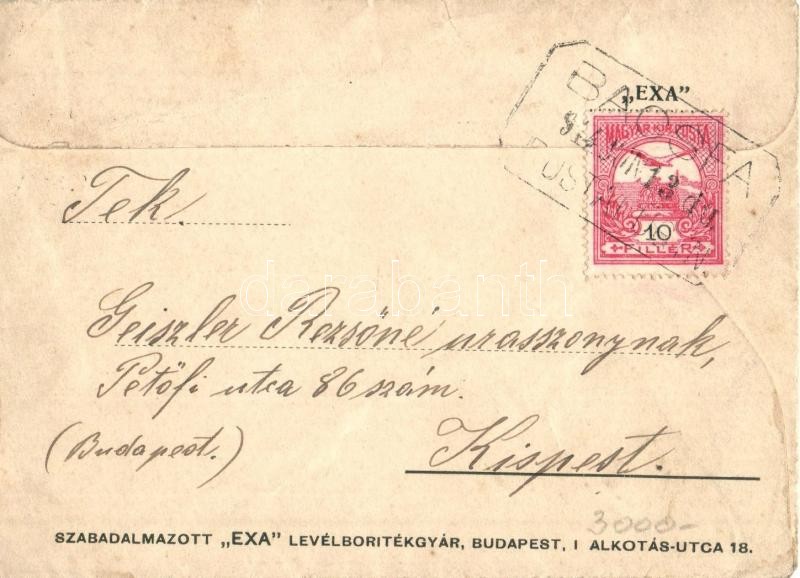 „EXA”
BAGOFA
13
MAGYAR KIR. POSTA
10
FILLÉR
Tek.
Geiszler Rezsőné urasszonynak,
Petőfi utca 86 szám.
(Budapest.)
Kispest.
3000-
SZABADALMAZOTT „EXA” LEVÉLBORITÉKGYÁR, BUDAPEST, I ALKOTÁS-UTCA 18.
darabanth